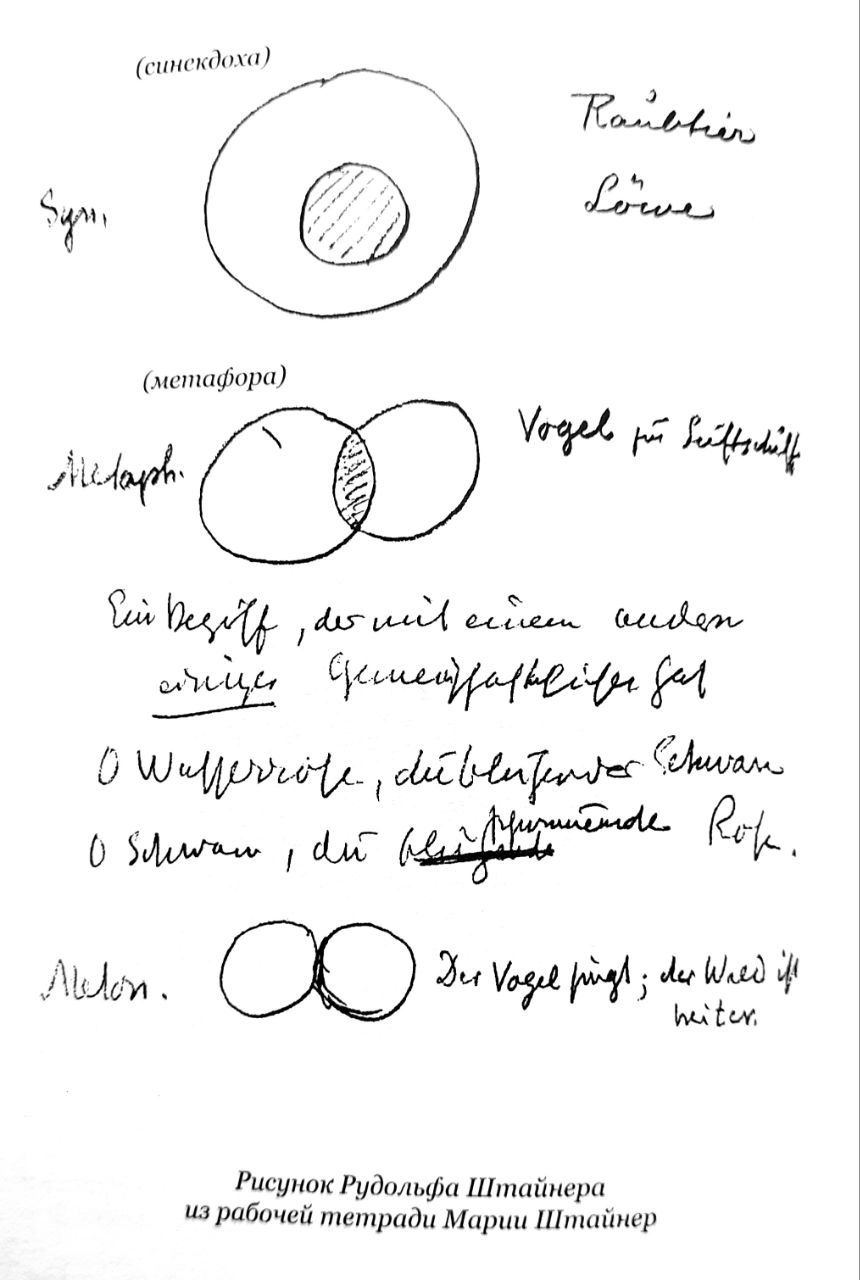 (синекдоха)
Raubtier
Löwe
Syn.
(метафора)
Vogel für Luftschiff
Metaph.
Ein Begriff, der mit einem andern
einiges Gemeinschaftliches hat
O Wasserrose, du blühender Schwan
O Schwan, du schwimmende Rose.
Meton.
Der Vogel singt; der Wald ist
heiter.
Рисунок Рудольфа Штайнера
из рабочей тетради Марии Штайнер